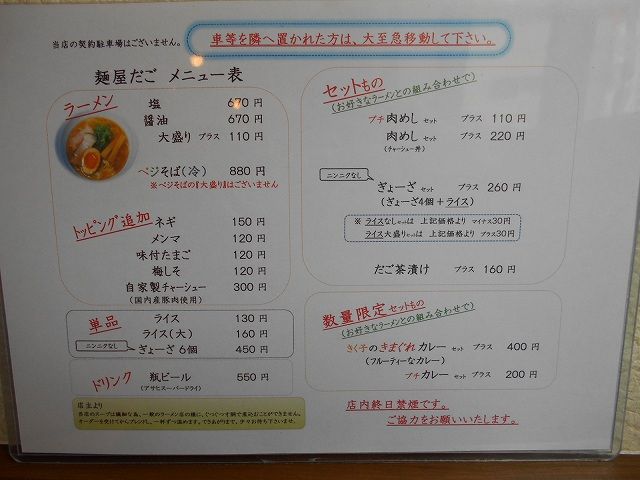 当店の契約駐車場はございません。
車等を隣へ置かれた方は、大至急移動して下さい。
麺屋だご メニュー表
ラーメン
塩 670 円
醤油 670 円
大盛り プラス 110 円
ベジそば(冷) 880 円
※ベジそばの『大盛り』はございません
トッピング追加
ネギ 150 円
メンマ 120 円
味付たまご 120 円
梅しそ 120 円
自家製チャーシュー 300 円
(国内産豚肉使用)
単品
ライス 130 円
ライス(大) 160 円
ニンニクなし
ぎょーざ 6個 450 円
ドリンク
瓶ビール 550 円
(アサヒスーパードライ)
店主より
セットもの
(お好きなラーメンとの組み合わせで)
プチ肉めし セット プラス 110 円
肉めし セット プラス 220 円
(チャーシュー丼)
ニンニクなし
ぎょーざ セット プラス 260 円
(ぎょーざ4個+ライス)
※ ライスなしセットは 上記価格より マイナス30円
ライス大盛りセットは 上記価格より プラス30円
だご茶漬け プラス 160 円
数量限定 セットもの
(お好きなラーメンとの組み合わせで)
きく子のきまぐれカレー セット プラス 400 円
(フルーティーなカレー)
プチカレー セット プラス 200 円
店内終日禁煙です。
ご協力をお願いいたします。